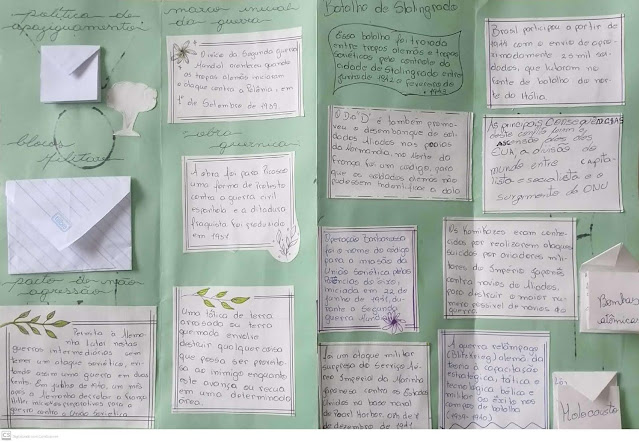 política de
apaziguamento
blocos
militares
pacto de não
agressão
Permitia à Alema
nha lutar nestas
guerras intermediárias sem
temer um ataque soviético, evi
tando assim uma guerra em duas
frente. Em julho de 1940, um mês
após a Alemanha derrotar a França
Hitler
guerra contra a União Soviética
marco inicial
da guerra
O início da Segunda guerra
Mundial aconteceu quando
as tropas alemãs iniciaram
o ataque contra a Polônia, em
1º de Setembro de 1939.
obra
guernica
A obra foi para Picasso
uma forma de protesto
contra a guerra civil
espanhola e a ditadura
franquista. Foi produzida
em 1937
Uma tática de terra
arrasada ou terra
queimada envolve
destruir qualquer coisa
que possa ser proveito
sa ao inimigo enquanto
este avança ou recua
em uma determinada
área.
Batalha de Stalingrado
Essa batalha foi travada
entre tropas alemãs e tropas
Soviéticas pelo controle da
cidade de Stalingrado entre
junho de 1942 a fevereiro de
1943
O Dia "D" é também promo
veu o desembarque de sol
dados Aliados nas praias
da Normandia, no Norte da
França foi um código, para
que os soldados alemães não
pudessem indentificar a data
Operação barbarossa
foi o nome de código
para a invasão da
União Soviética pelas
Potências do eixo,
iniciada em 22 de
junho de 1941, du
rante a Segunda
guerra Mundial
foi um ataque militar
surpresa do Serviço Aéreo
Imperial da Marinha
Japonesa contra os Estados
Unidos na base naval
de Pearl Harbor. em 7
dezembro de 1941
Brasil participou a partir de
1944 com o envio de apro
ximadamente 25 mil sol
dados, que lutaram no
fonte de batalha do nor
te da Itália.
As principais CONSEQUÊNCIAS
deste conflito foram a
ascensão dos
EUA, a divisão do
mundo entre capita
lista e socialista e o
surgimento da ONU
Os Kamikazes eram conhe
cidos por realizarem ataques
suicidas por aviadores mili
tares do Império Japonês
contra navios dos Aliados,
para destruir o maior nu
mero possível de navios de
guerra.
A guerra relâmpago
(Blitzkrieg) alemã da
tona a capacitação
estratégica, tática e
tecnológica bélica e
militar ao êxito nos
campos de batalha
(1939-1940)
Bombas
atômicas
Holocausto
CS